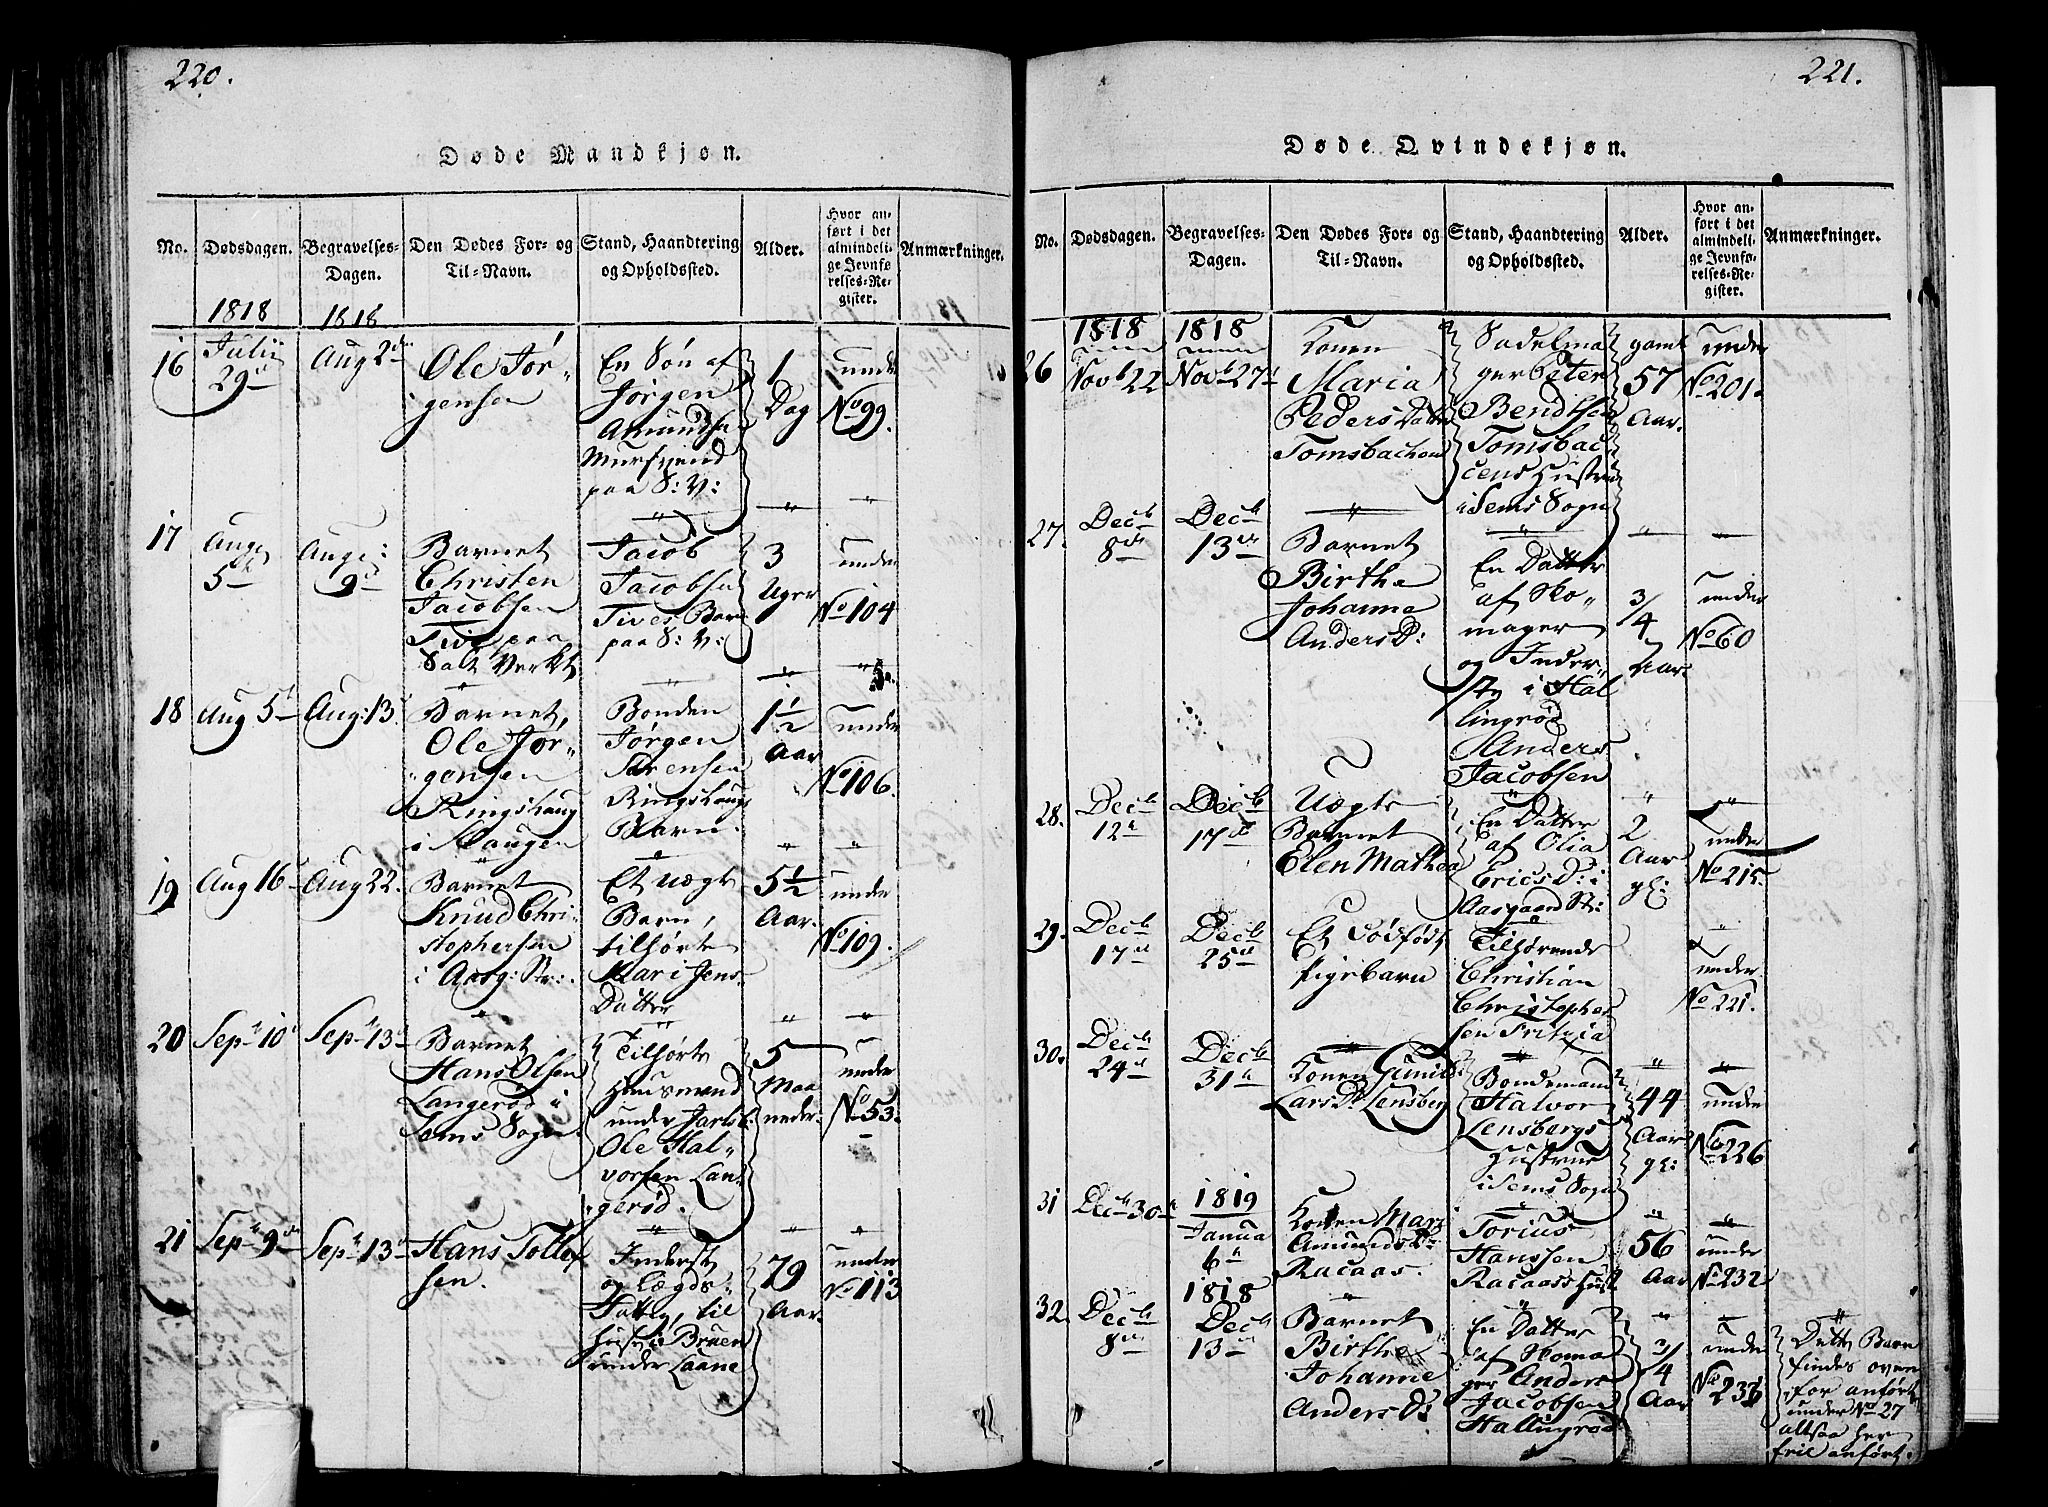 220.
Døde Mandkjøn.
No.
Dødsdagen.
Begravelses-
Dagen.
Den Dødes For- og
Til-Navn.
Stand, Haandtering
og Opholdssted.
Alder.
Hvor an-
ført i det
almindeli-
ge Jevnfø-
relses-Re-
gister.
Anmærkninger.
1818
1818
16
Julii
29
Aug 2
Ole Jør-
gensen
En Søn af
Jørgen
Amundsen
Mursvend
paa S: V:
1
Dag
under
No 99.
17
Aug
5
Aug:
9
Barnet
Christen
Jacobsen
Tive paa
Salt Verket
Jacob
Jacobsen
Tives Barn
paa S: V:
3
Uger
under
No 104
18
Aug 5
Aug: 13.
Barnet,
Ole Jør-
gensen
Ringshaug
i Slaugen
Bonden
Jørgen
Sørensen
Ringshaugs
Barn.
1½
Aar
under
No 106.
19
Aug 16
Aug 22.
Barnet
Knud Chri-
stophersen
i Aasg: Str:
Et uægte
Barn,
tilhørte
Mari Jens
Datter
5½
Aar.
under
No 109.
20
Sep 10
Sep 13
Barnet
Hans Olsen
Langerød i
Sems Sogn
Tilhørte
Huusmand
under Jarlsb:
Ole Hal-
vorsen Lan-
gerød.
5
Maa
neder.
under
No 53.
21
Sep 9
Sep 13
Hans Tollef
sen.
Inderst
og Lægds-
Fattig, til
huse i Bruen
under Laane
79
Aar.
under
No 113
221.
Døde Qvindekjøn.
No.
Dødsdagen.
Begravelses-
Dagen.
Den Dødes For- og
Til-Navn.
Stand, Haandtering
og Opholdssted.
Alder.
Hvor an-
ført i det
almindeli-
ge Jevnfø-
relses-Re-
gister.
Anmærkninger.
26
1818
Novb 22
1818
Novb 27
Konen
Maria
Peders Datter
Tomsbachen
Sadelma
ger Peter
Bendtsen
Tomsbac-
cens Hustrue
i Sems Sogn
gaml
57
Aar.
under
No 201.
27.
Decb
8
Decb
13
Barnet
Birthe
Johanne
Anders D:
En Datter
af Sko-
mager
og Inder-
st i Hal
lingrød
Anders
Jacobsen
3/4
Aar.
under
No 60
28.
Decb
12
Decb
17
Uægte
Barnet
Elen Mathea
En Datter
af Olia
Erics D: i
Aasgaard Str:
2
Aar
gl:
under
No 215.
29.
Decb
17
Decb
25
Et dødfødt
Pigebarn
Tilhørende
Christian
Christopher
sen Fritzia
under
No 221.
30.
Decb
24
Decb
31
Konen Gunild
Lars D. Lensberg
Bondemand
Halvor
Lensbergs
Hustrue
i Sems Sogn
44
Aar
gl:
under
No 226
31
Decb 30
1819
Janua
6
Konen Mari
Amunds D:
Racaas.
Torius
Hanssen
Racaass Hust
56
Aar
under
No 232
32.
Decb
8
1818
Decb
13
Barnet
Birthe
Johanne
Anders D:
En Datter
af Skoma
ger Anders
Jacobsen
Hallingrød
3/4
Aar
under
No 236
Dette Barn
findes oven
for anført
under No 27
altsaa her
feil anført.